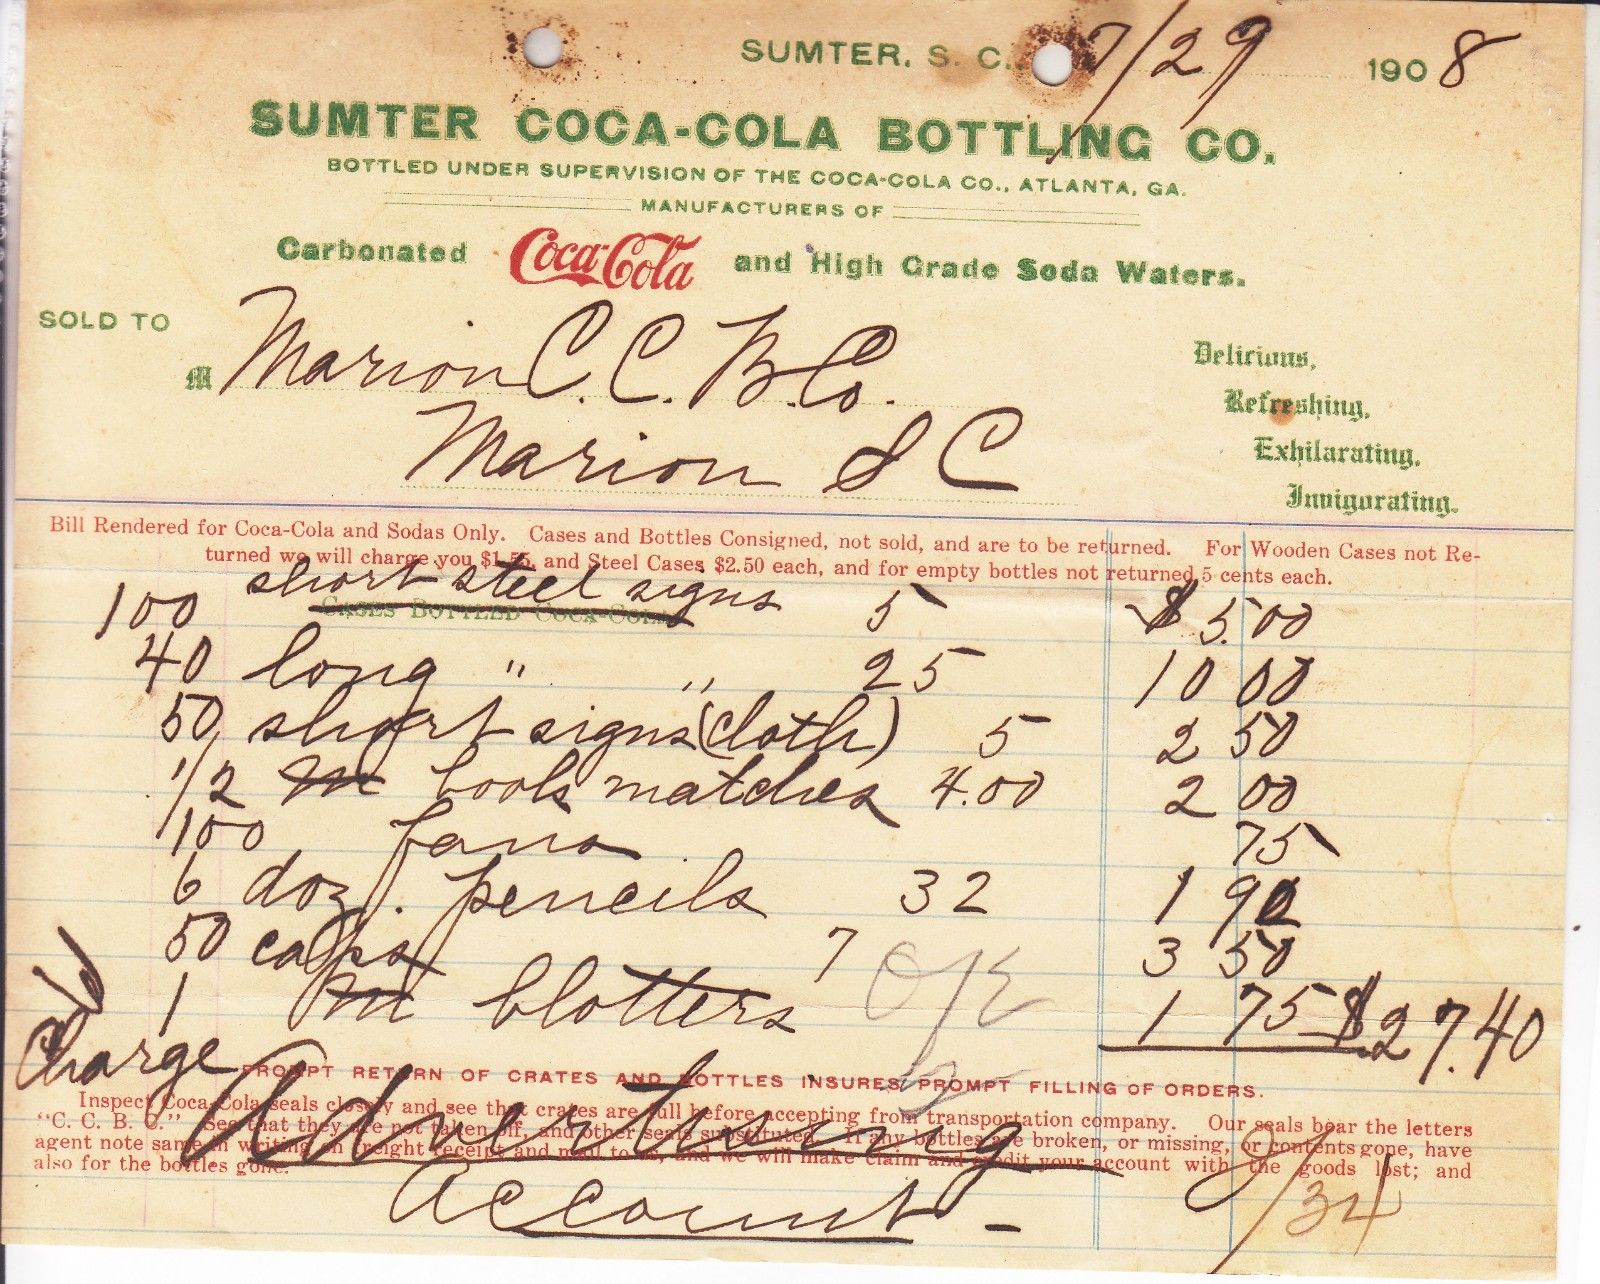 SUMTER, S. C., 7/29 1908
SUMTER COCA-COLA BOTTLING CO.
BOTTLED UNDER SUPERVISION OF THE COCA-COLA CO., ATLANTA, GA.
MANUFACTURERS OF
Carbonated Coca-Cola and High Grade Soda Waters.
SOLD TO
M Marion C. C. B. Co.
Marion S C
Delicious,
Refreshing,
Exhilarating,
Invigorating.
Bill Rendered for Coca-Cola and Sodas Only. Cases and Bottles Consigned, not sold, and are to be returned. For Wooden Cases not Re-
turned we will charge you $1.55, and Steel Cases $2.50 each, and for empty bottles not returned 5 cents each.
100 short steel signs 5 $ 5.00
CASES BOTTLED COCA-COLA
40 long " " 25 10 00
50 short signs (cloth) 5 2 50
1/2 M books matches 4.00 2 00
100 fans 75
6 doz. pencils 32 1 92
50 caps 7 3 50
1 M blotters 1 75 $27.40
Charge
PROMPT RETURN OF CRATES AND BOTTLES INSURES PROMPT FILLING OF ORDERS.
Advertising
Inspect Coca-Cola seals closely and see that crates are full before accepting from transportation company. Our seals bear the letters
"C. C. B. C." See that they are not taken off, and other seals substituted. If any bottles are broken, or missing, or contents gone, have
agent note same in writing on freight receipt and mail to us, and we will make claim and credit your account with the goods lost; and
also for the bottles gone.
Account